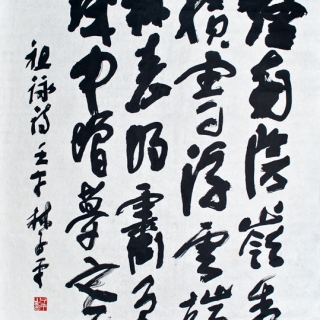 終南陰嶺秀
積雪浮雲端
林表明霽色
城中增暮寒
祖詠詩壬午林